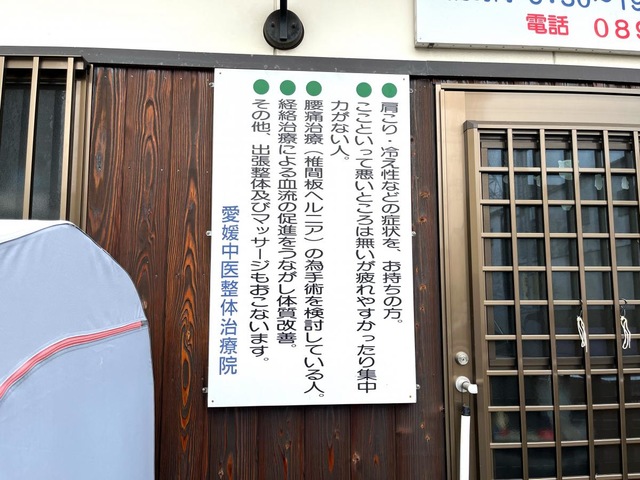 電話 089
●肩こり・冷え性などの症状を、お持ちの方。
●ここといって悪いところは無いが疲れやすかったり集中
力がない人。
●腰痛治療（椎間板ヘルニア）の為手術を検討している人。
●経絡治療による血流の促進をうながし体質改善。
●その他、出張整体及びマッサージもおこないます。
愛媛中医整体治療院